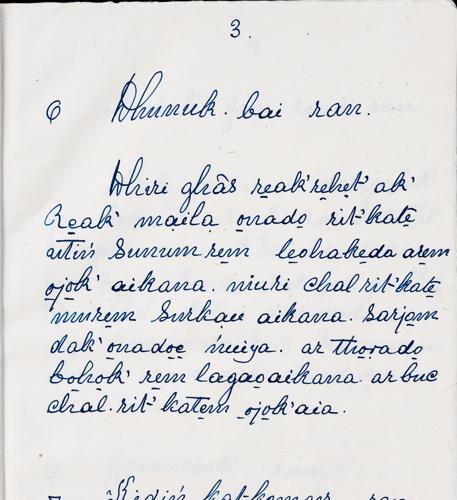 3.
6 Dhunuk. bai ran.
Dhiri ghãs reak' rehet' ak'
Reak' maila onado rit' kate
utiń sunum rem leohakeda arem
ojok' aikana. niuri chal rit' kate
murem surkau aikana. sarjom
dak' onadoe ńuiya. ar thorado
bohok' rem lagaoaikana. ar buc
chal. rit' katem ojok'aia.
7 ran